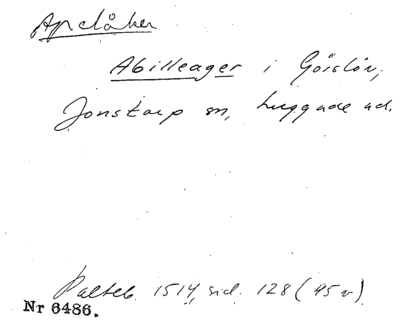 Apelåker
Abilleager i Göislöv,
Jonstorp sn, Luggude hd.
Palteb. 1514, sid. 128 (45 v)
Nr 6486.